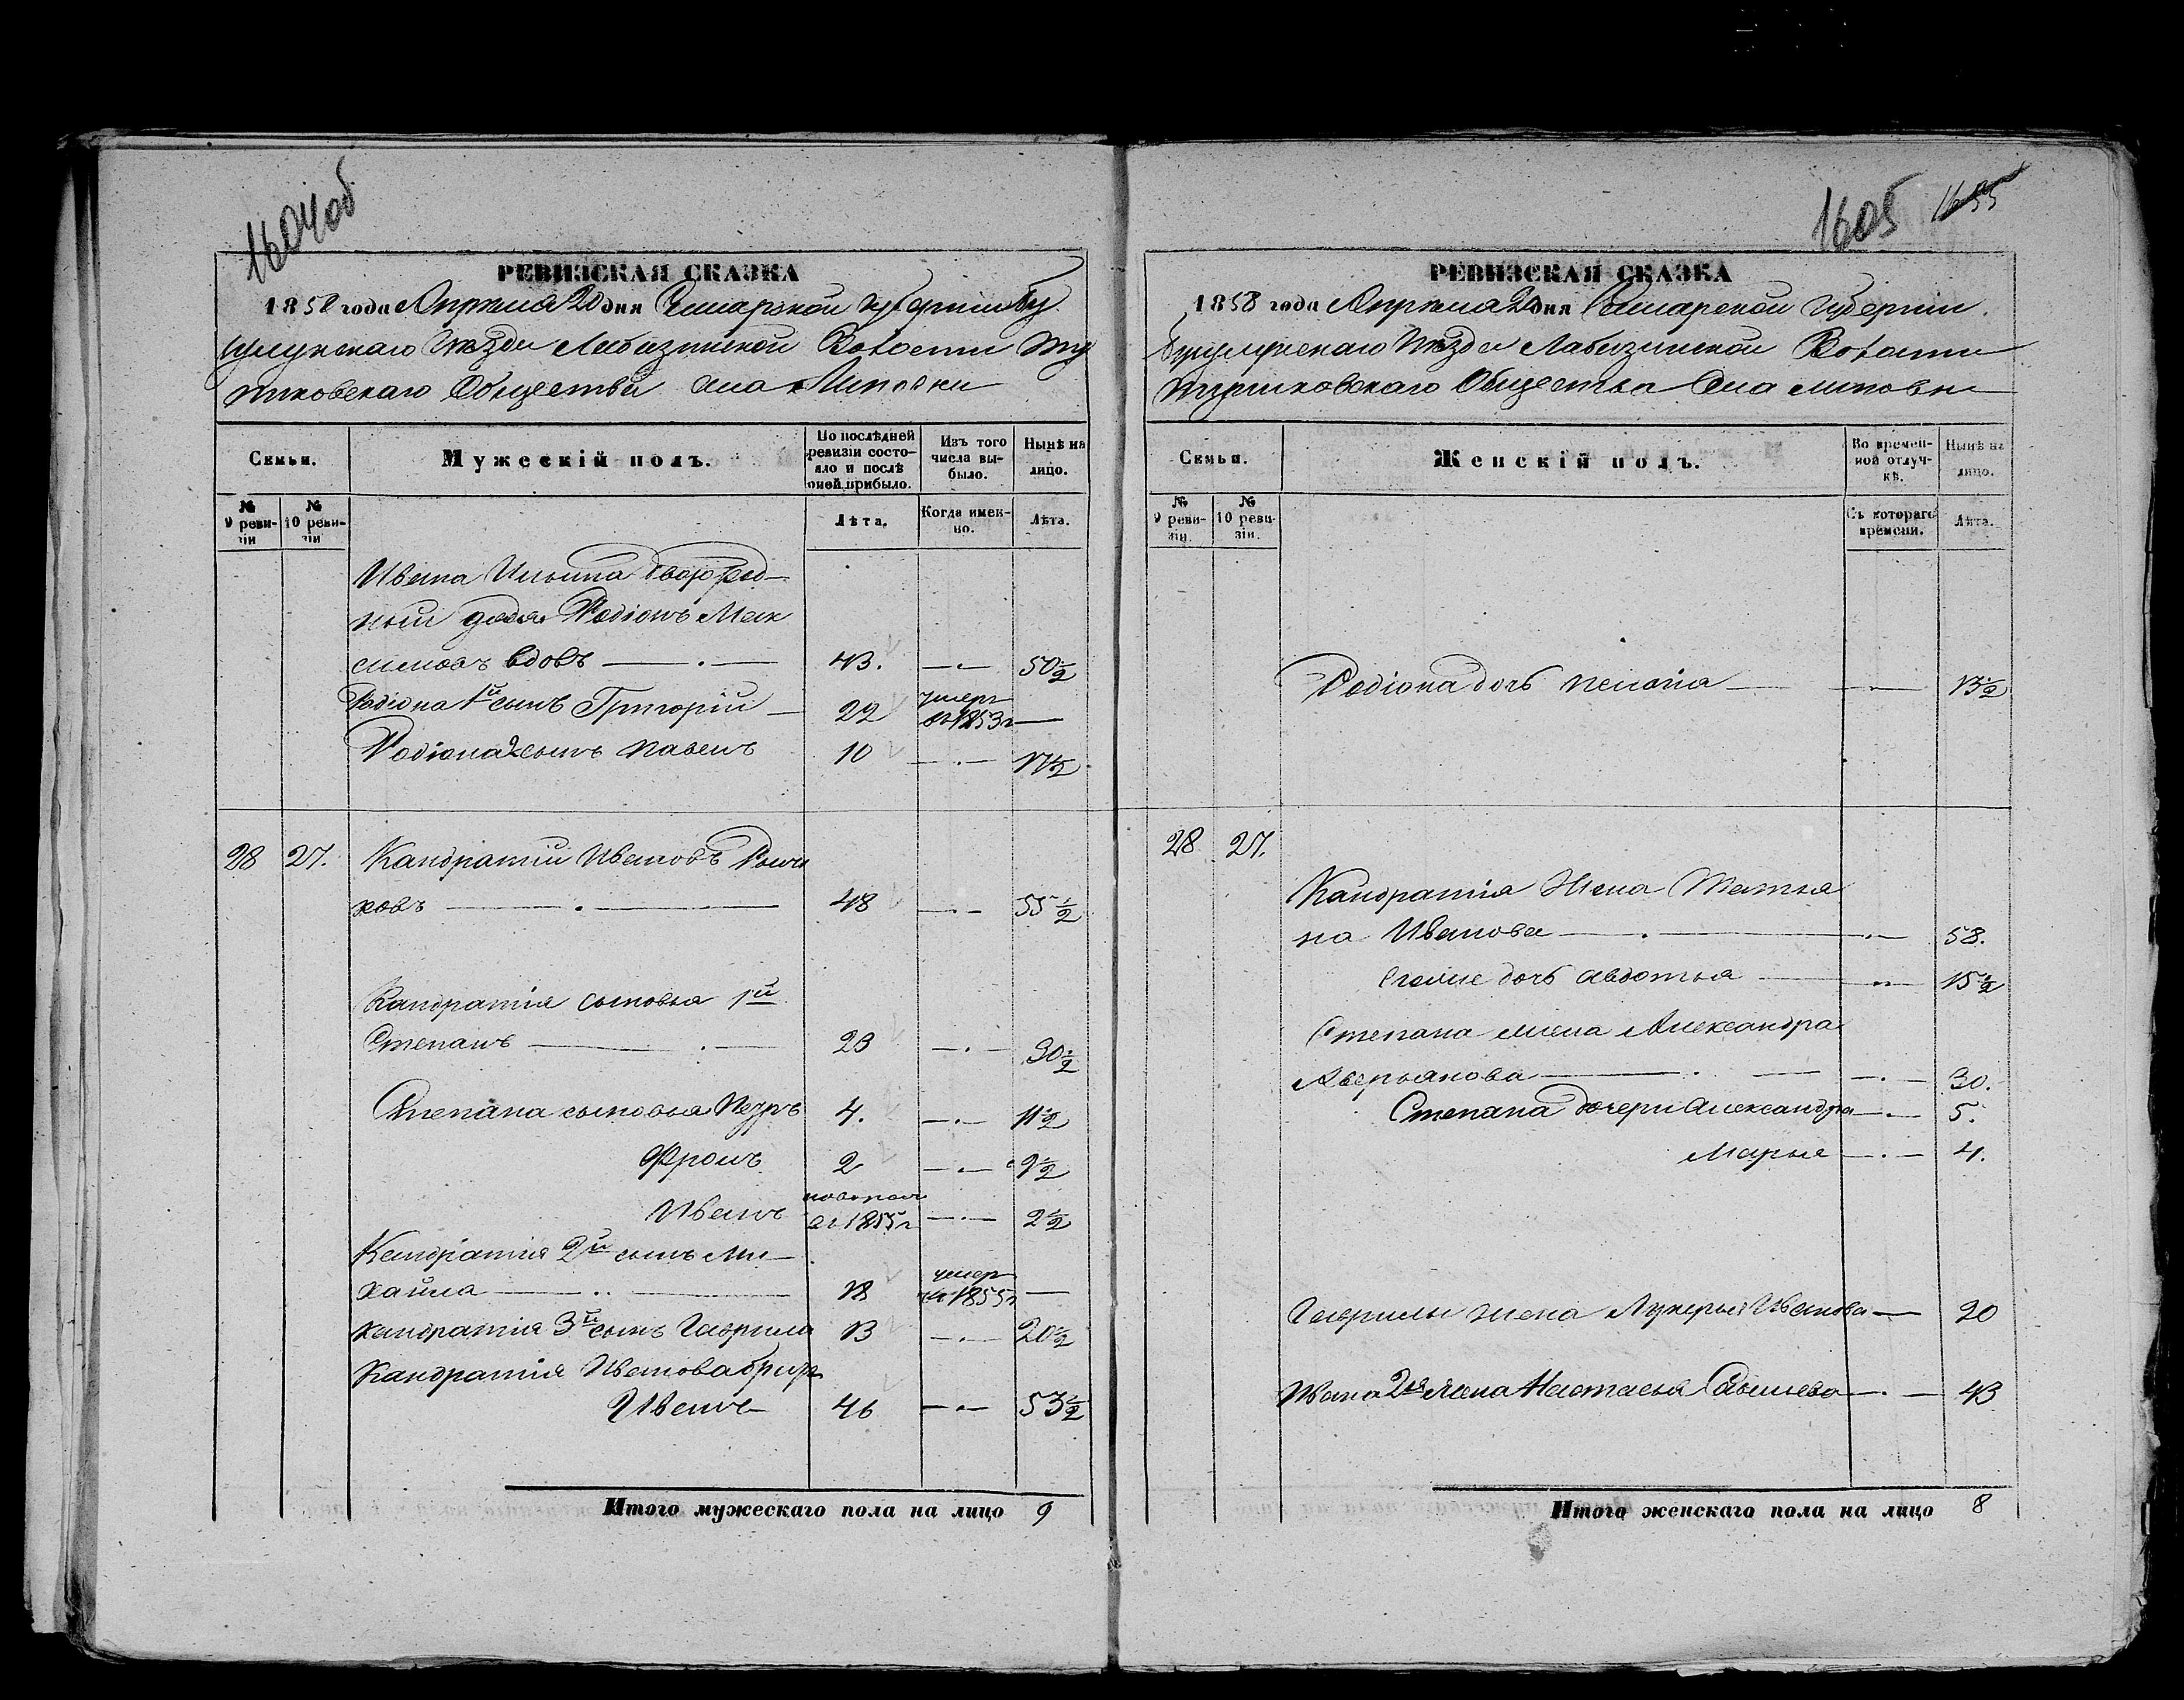 1604об
РЕВИЗСКАЯ СКАЗКА
1858 года Апреля 20 дня Самарской губернии Бу
гульмскаго Уѣзда Волости
Общества села Липовки
Семьи.
Мужескій полъ.
По послѣдней ревизіи состояло и послѣ оней прибыло.
Изъ того числа выбыло.
Нынѣ на лицо.
№ 9 ревизіи
№ 10 ревизіи
Лѣта.
Когда именно.
Лѣта.
Ивана Ильина двоюрод-
ный дядя Родіонъ Мак
симовъ вдовъ 43. 50½
Родіона 1й сынъ Григорій 22 умеръ въ 1853г
Родіона 2 сынъ Павелъ 10 17½
28 27. Кандратій Ивановъ
ковъ 48 55½
Кандратія сыновья 1й
Степанъ 23 30½
Степана сыновья Петръ 4. 11½
Фролъ 2 9½
Иванъ 1855г 2½
Кандратія 2й сынъ Ми-
хайла 18 умеръ 1855г
Кандратія 3й сынъ Гаврила 13 20½
Кандратія Иванова братъ
Иванъ 46 53½
Итого мужескаго пола на лицо 9
1605 1655
РЕВИЗСКАЯ СКАЗКА
1858 года Апреля 20 дня Самарской Губернии.
Уѣзда Волости
Общества села Липовки
Семьи.
Женскій полъ.
Во временной отлучкѣ.
Нынѣ на лицо.
№ 9 ревизіи.
№ 10 ревизіи.
Съ котораго времени.
Лѣта.
Родіона дочь Пелагія 13½
28 27.
Кандратія Жена Татья
на Иванова 58.
дочь Авдотья 15½
Степана жена Александра
Аверьянова 30.
Степана дочери Александра 5.
Марья 4.
Гаврилы жена Лукерья Иванова 20
Ивана 2я жена Настасья 43
Итого женскаго пола на лицо 8